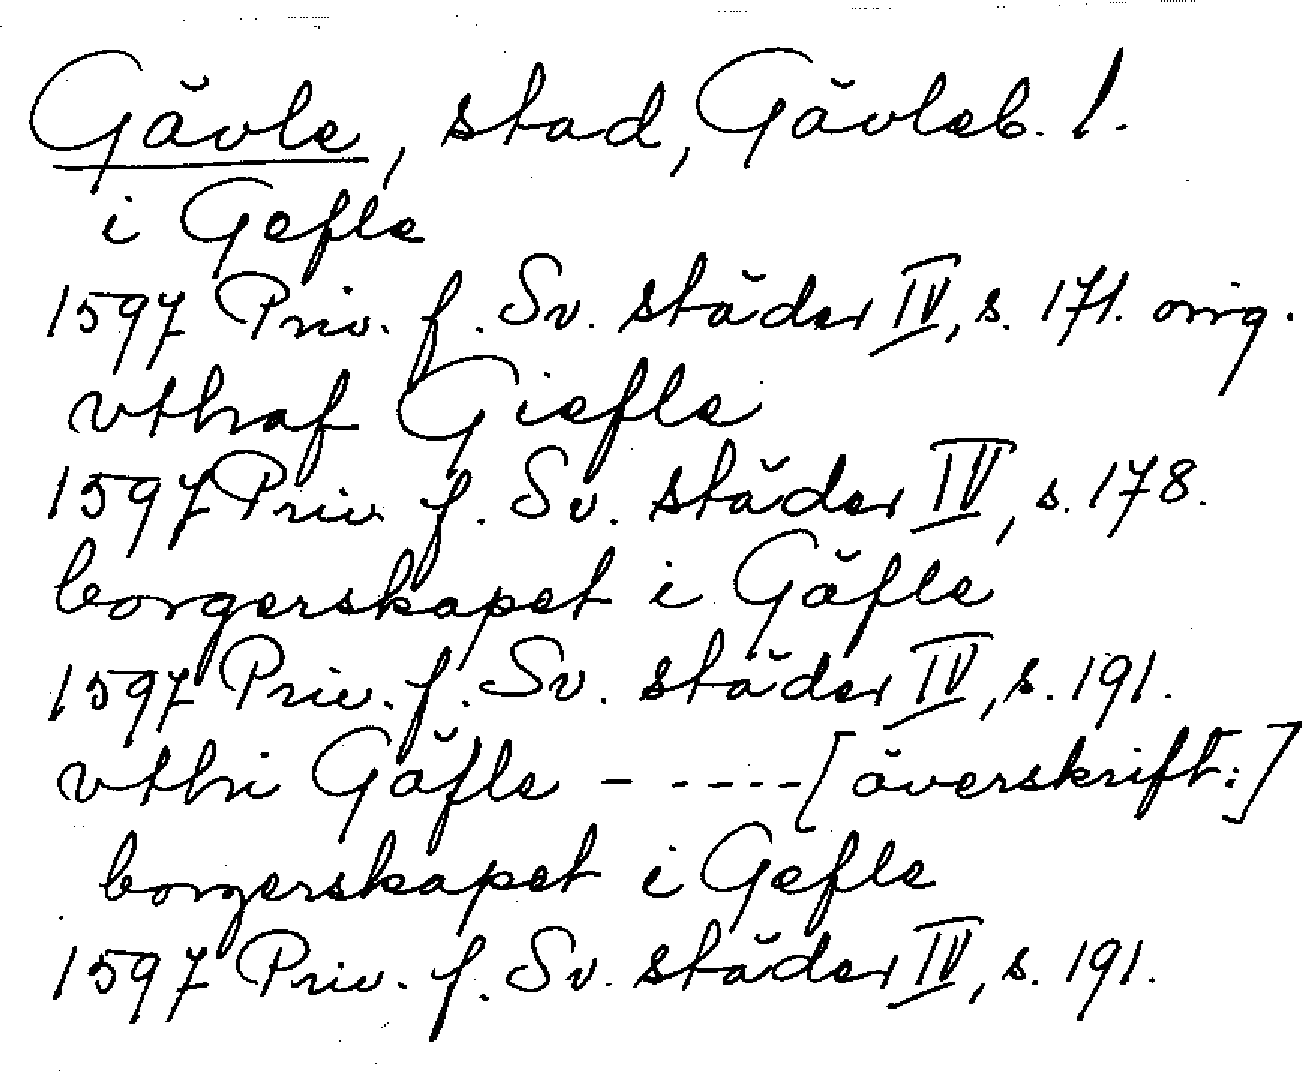 Gävle, stad, Gävleb. l.
i Gefle
1597 Priv. f. Sv. städer IV, s. 171. orig.
vthaf Giefle
1597 Priv. f. Sv. städer IV, s. 178.
borgerskapet i Gäfle
1597 Priv. f. Sv. städer IV, s. 191.
vthi Gäfle - ---- [överskrift:]
borgerskapet i Gefle
1597 Priv. f. Sv. städer IV, s. 191.